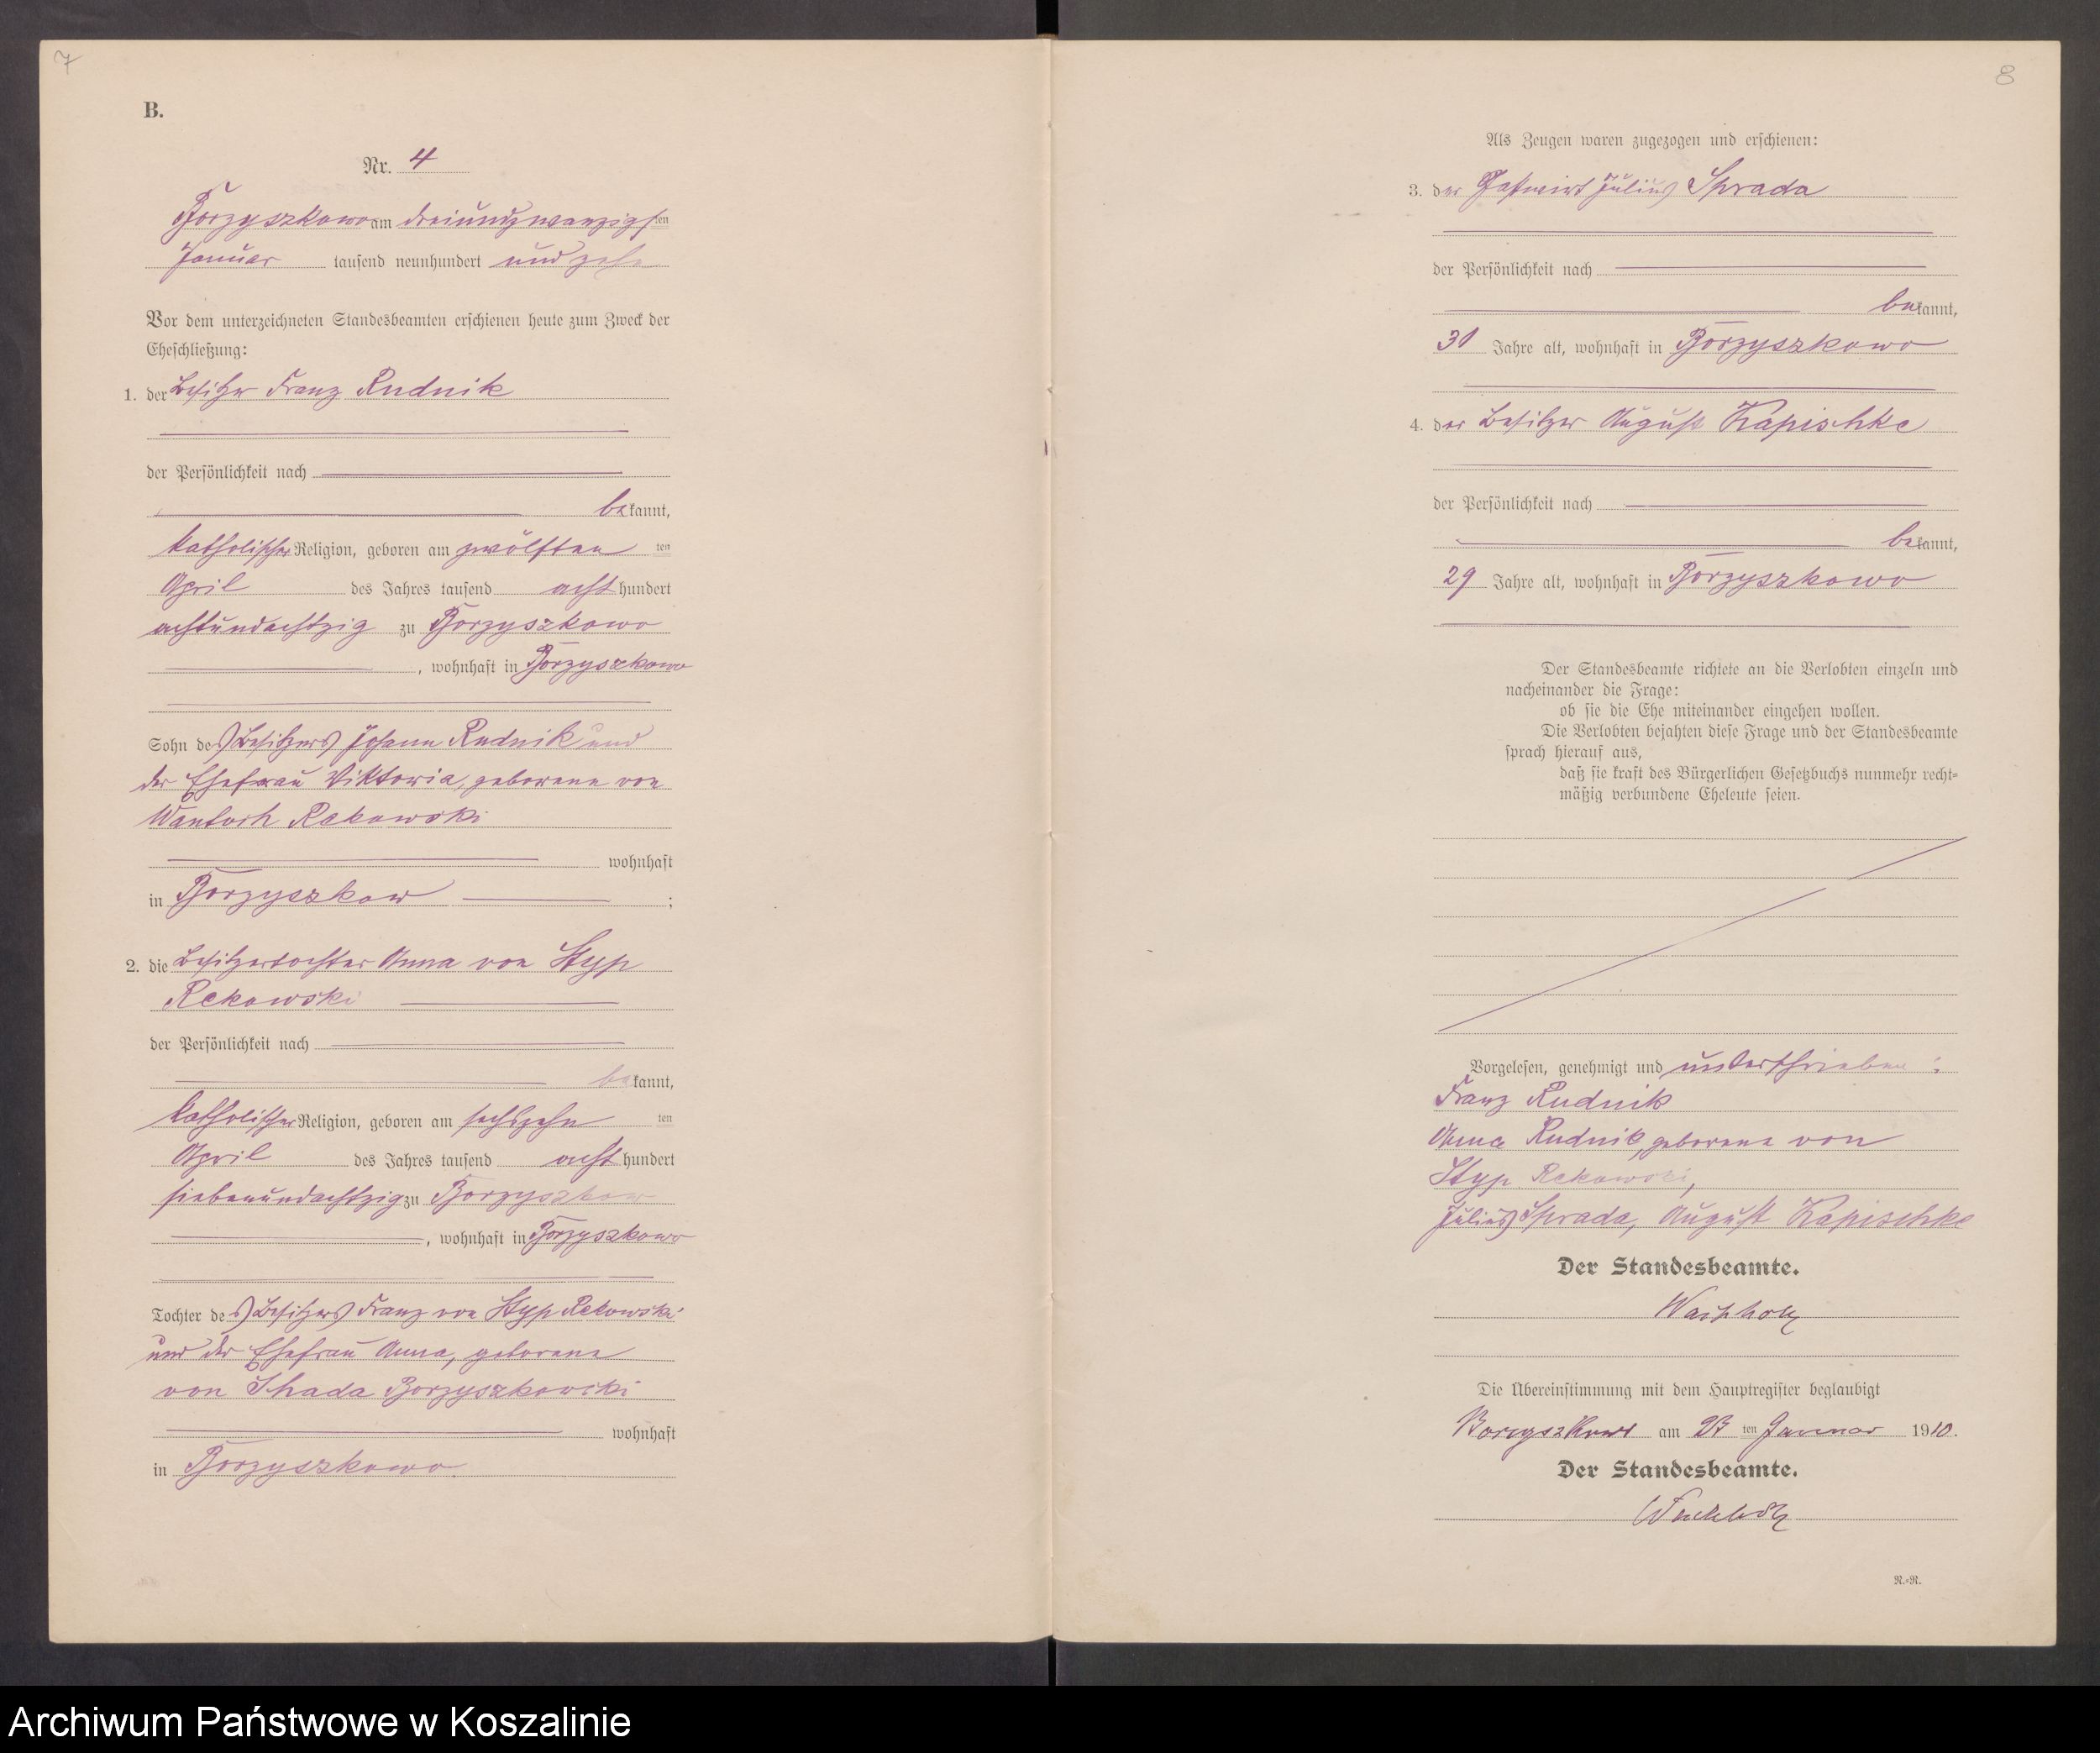 7
B.
Nr. 4
Borzyszkowo am dreiundzwanzigsten
Januar tausend neunhundert und zehn
Vor dem unterzeichneten Standesbeamten erschienen heute zum Zweck der
Eheschließung:
1. der Besitzer Franz Rudnik
der Persönlichkeit nach
bekannt,
katholischer Religion, geboren am zwölften ten
April des Jahres tausend acht hundert
achtundachtzig zu Borzyszkowo
, wohnhaft in Borzyszkowo
Sohn des Besitzers Johann Rudnik und
der Ehefrau Viktoria, geborene von
Wantoch Rekowski
wohnhaft
in Borzyszkow ;
2. die Besitzertochter Anna von Styp
Rekowski
der Persönlichkeit nach
bekannt,
katholischer Religion, geboren am sechszehn ten
April des Jahres tausend acht hundert
siebenundachtzig zu Borzyszkow
, wohnhaft in Borzyszkowo
Tochter des Besitzers Franz von Styp Rekowski
und der Ehefrau Anna, geborene
von Borzyszkowski
wohnhaft
in Borzyszkowo
8
Als Zeugen waren zugezogen und erschienen:
3. der Gastwirt Julius Sprada
der Persönlichkeit nach
bekannt,
31 Jahre alt, wohnhaft in Borzyszkowo
4. der Besitzer August Kapischke
der Persönlichkeit nach
bekannt,
29 Jahre alt, wohnhaft in Borzyszkowo
Der Standesbeamte richtete an die Verlobten einzeln und
nacheinander die Frage:
ob sie die Ehe miteinander eingehen wollen.
Die Verlobten bejahten diese Frage und der Standesbeamte
sprach hierauf aus,
daß sie kraft des Bürgerlichen Gesetzbuchs nunmehr recht-
mäßig verbundene Eheleute seien.
Vorgelesen, genehmigt und unterschrieben:
Franz Rudnik
Anna Rudnik, geborene von
Styp Rekowski,
Julius Sprada, August Kapischke
Der Standesbeamte.
Die Übereinstimmung mit dem Hauptregister beglaubigt
Borzyszkowo am 23 ten Januar 1910.
Der Standesbeamte.
R.-R.
Archiwum Państwowe w Koszalinie